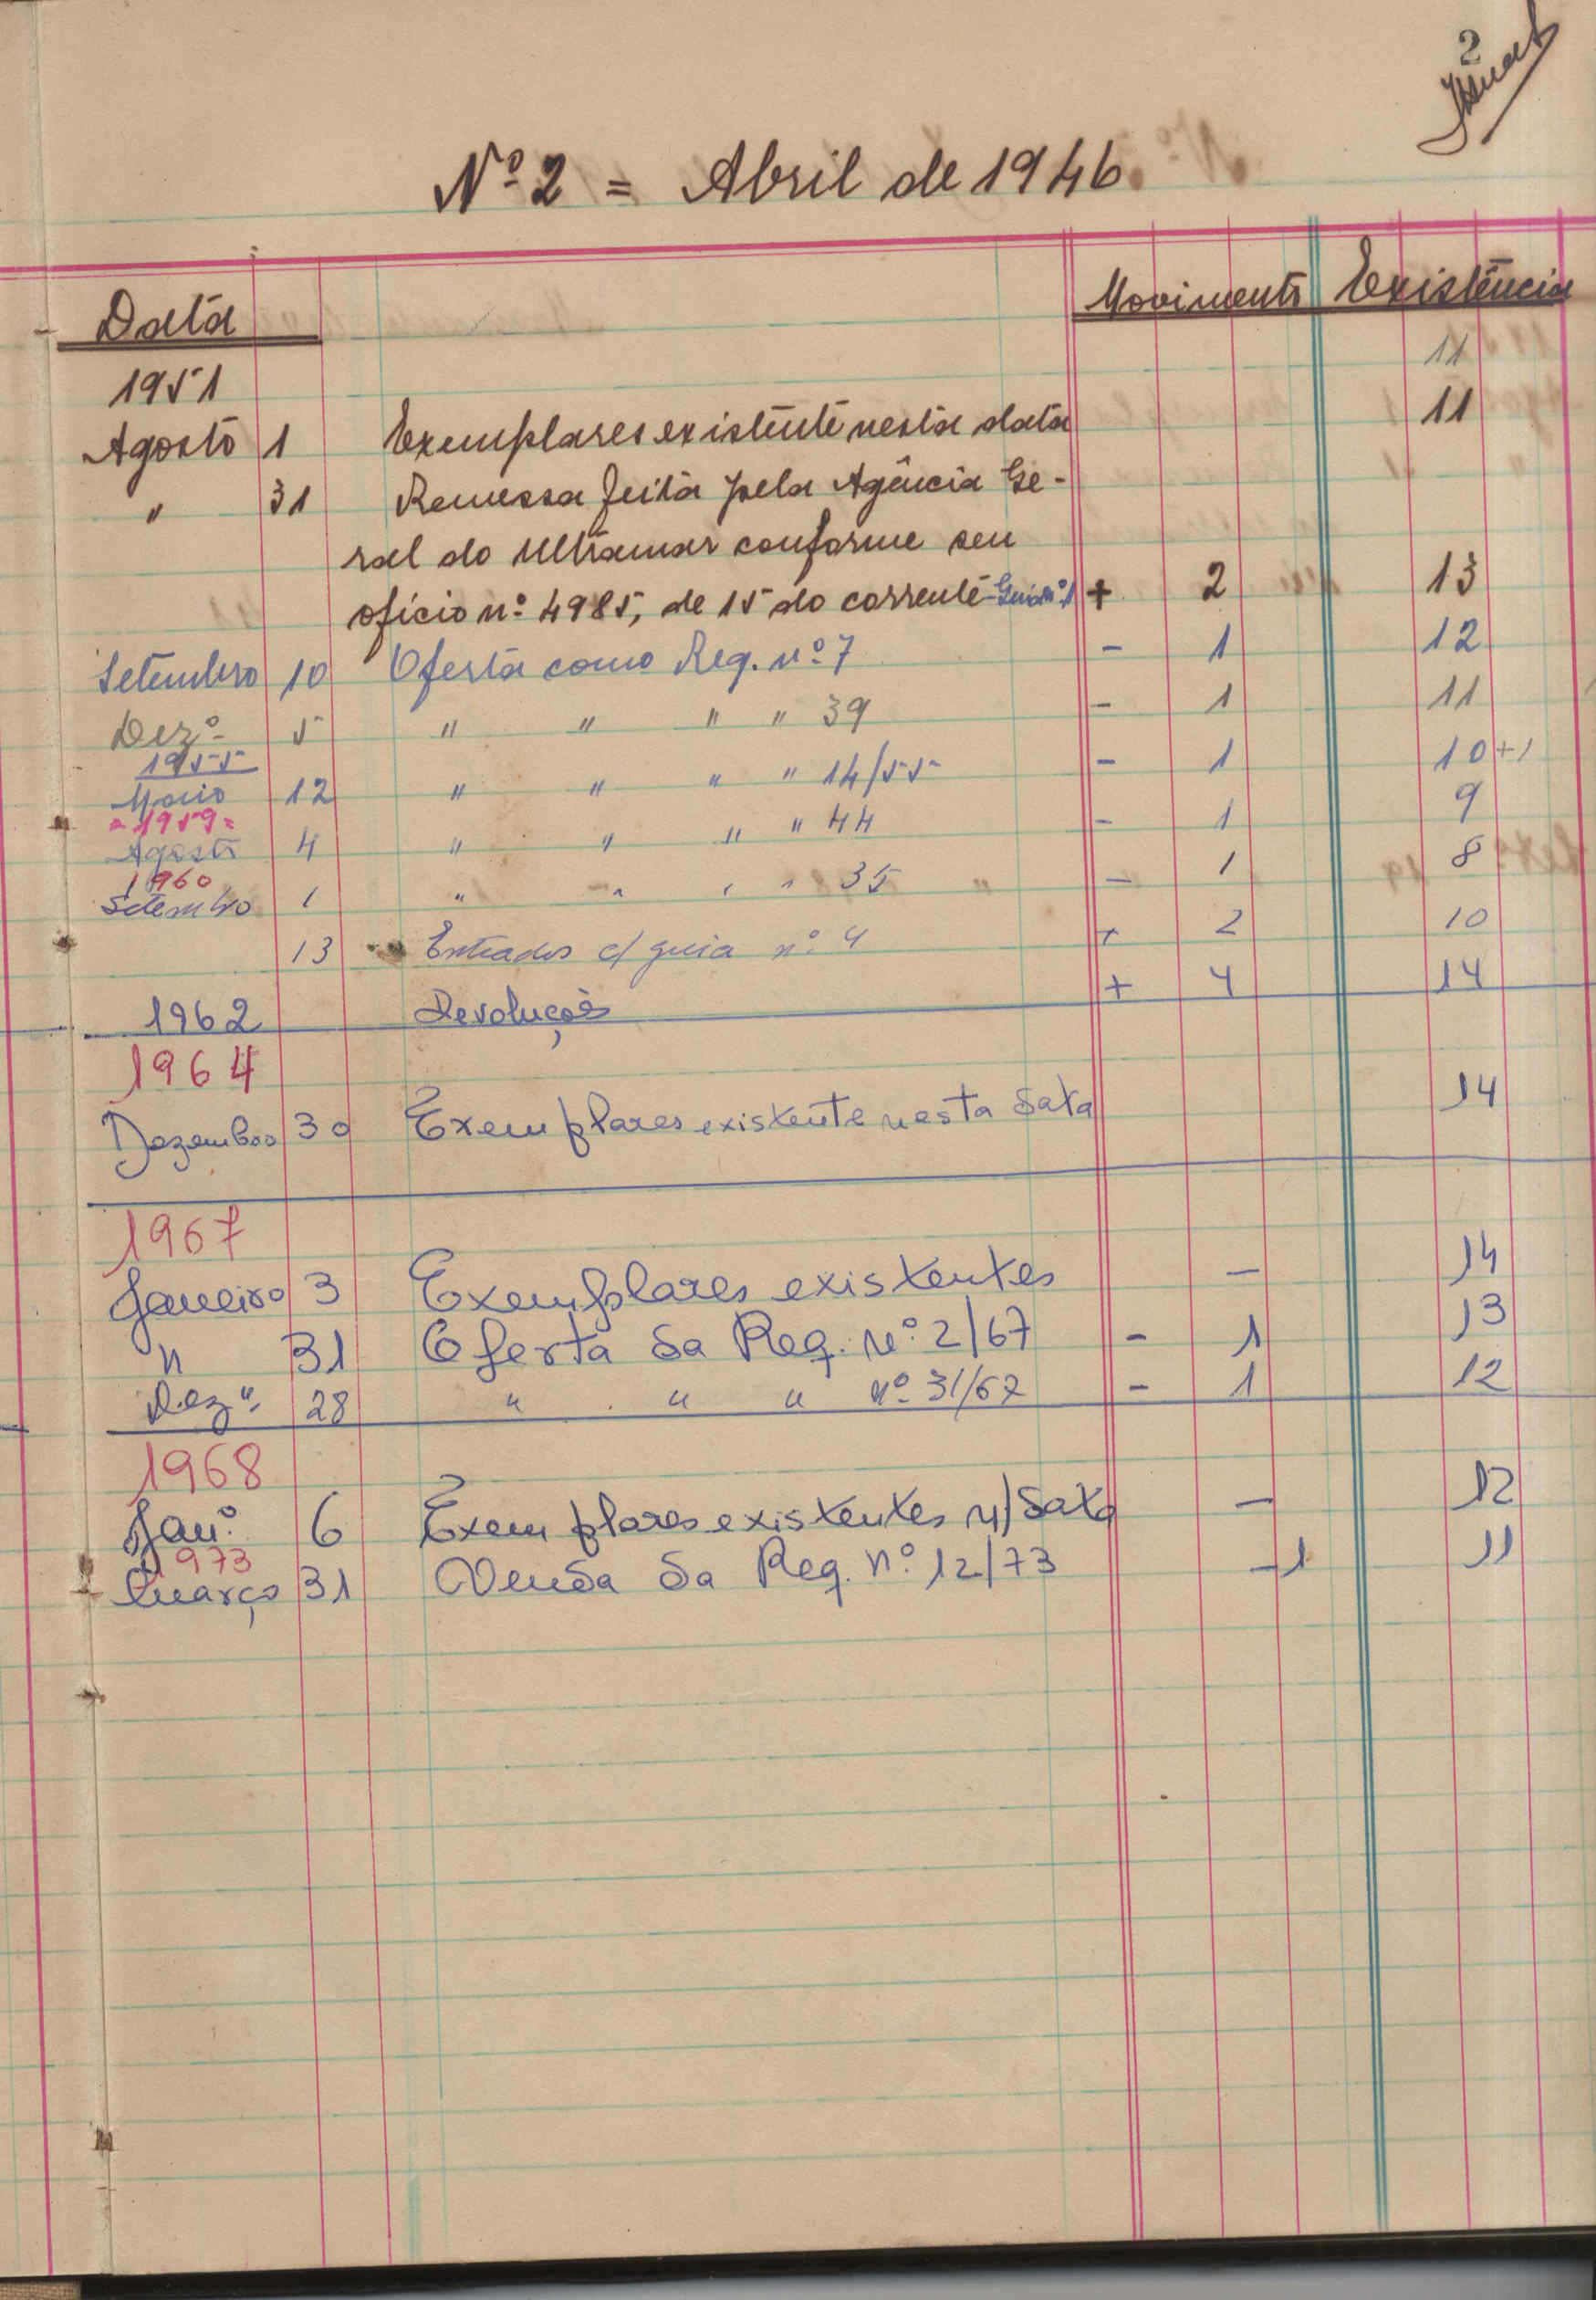 2
Nº 2 = Abril de 1946.
Data Movimento Existência
11
1951
Agosto 1 Exemplares existente nesta data 11
" 31 Remessa feita pela Agência Ge-
ral do Ultramar conforme seu
ofício nº 4985, de 15 do corrente - Guia nº 1 + 2 13
Setembro 10 Oferta como Req. nº 7 - 1 12
Dezº 5 " " " " 39 - 1 11
1955
Maio 12 " " " " 14/55 - 1 10+1
= 1959 =
Agosto 4 " " " " 44 - 1 9
1960
Setembro 1 " " " " 35 - 1 8
13 Entrados c/ guia nº 4 + 2 10
1962 Devoluções + 4 14
1964
Dezembro 30 Exemplares existente nesta data 14
1967
Janeiro 3 Exemplares existentes - 14
" 31 Oferta da Req. nº 2/67 - 1 13
Dezº 28 " " " nº 31/67 - 1 12
1968
Janº 6 Exemplares existentes n/data - 12
1973
Março 31 Venda da Req. nº 12/73 -1 11